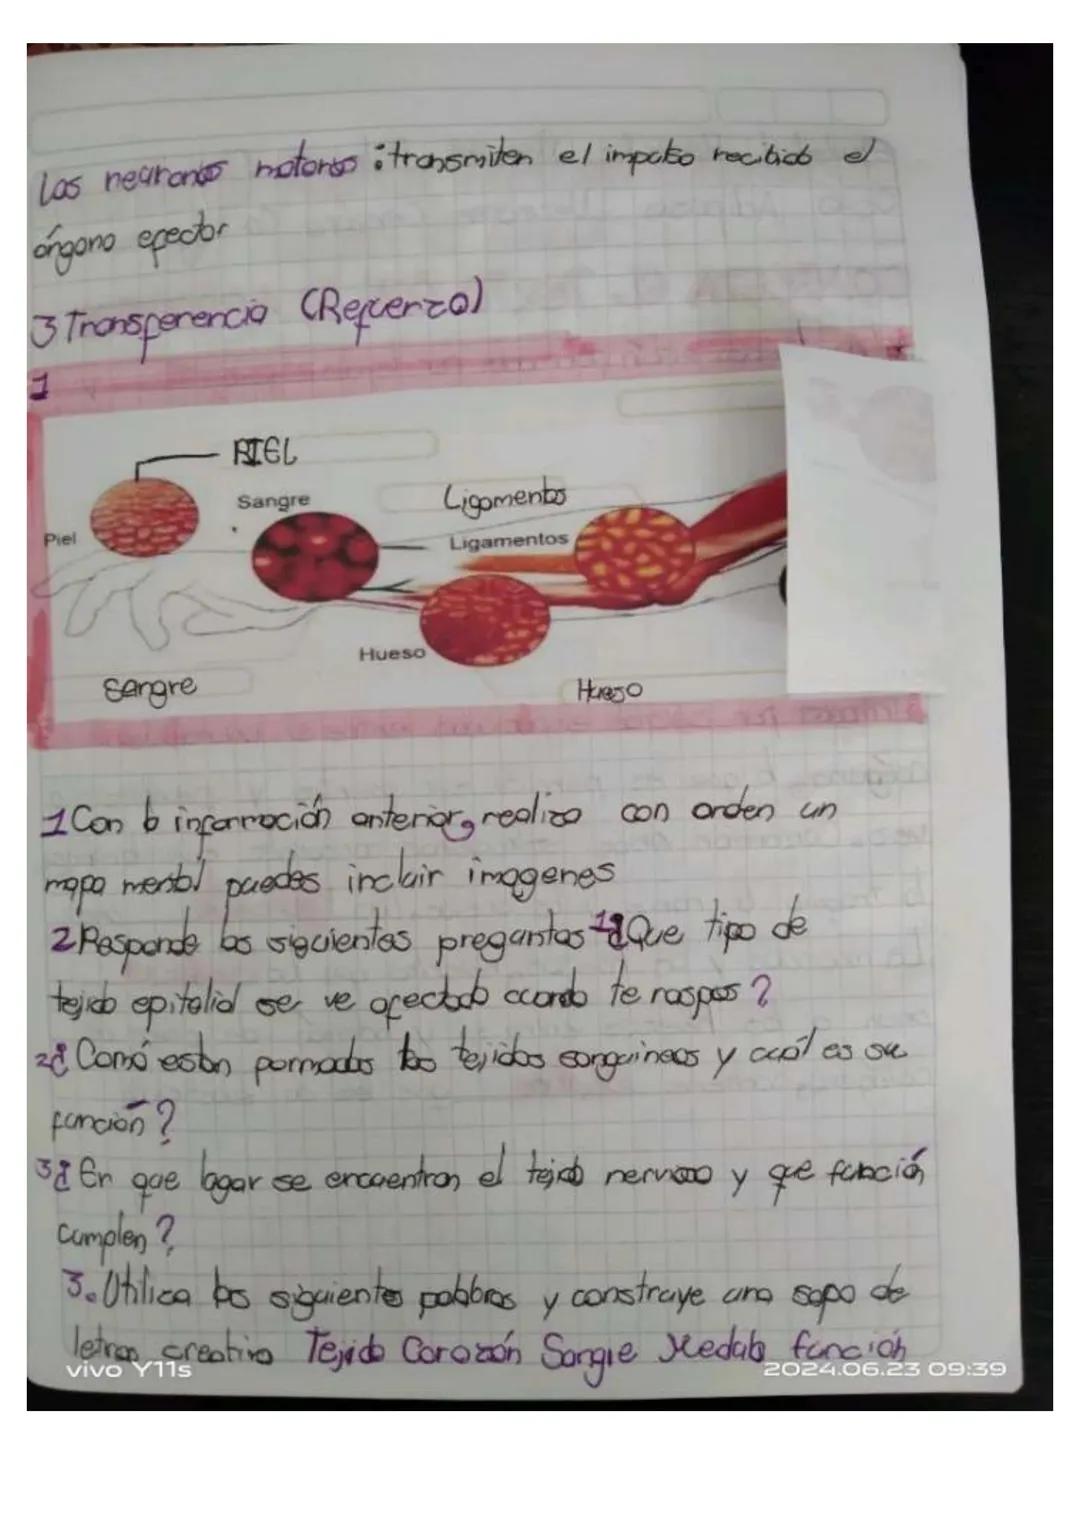 Las neuronas motoras: transmiten el impulso recibido el
órgano efector
3 Transferencia (Refuerzo)
1
PIEL
Sangre
Ligamentos
Piel
Ligamentos
Hueso
Sangre
Hueso
1 Con la información anterior, realiza con orden un
mapa mental puedes incluir imagenes
2 Responde las siguientes preguntas 1¿Que tipo de
tejido epitelial se ve afectado cuando te raspas?
2¿Comó estan formados los tejidos sanguineos y cuál es su
función?
3¿En que lugar se encuentran el tejido nervioso y que función
cumplen?
3. Utilica las siguientes palabras y construye una sopa de
letras creativa Tejido Corazón Sangre Medula función
vivo Y11s
2024.06.23 09:39